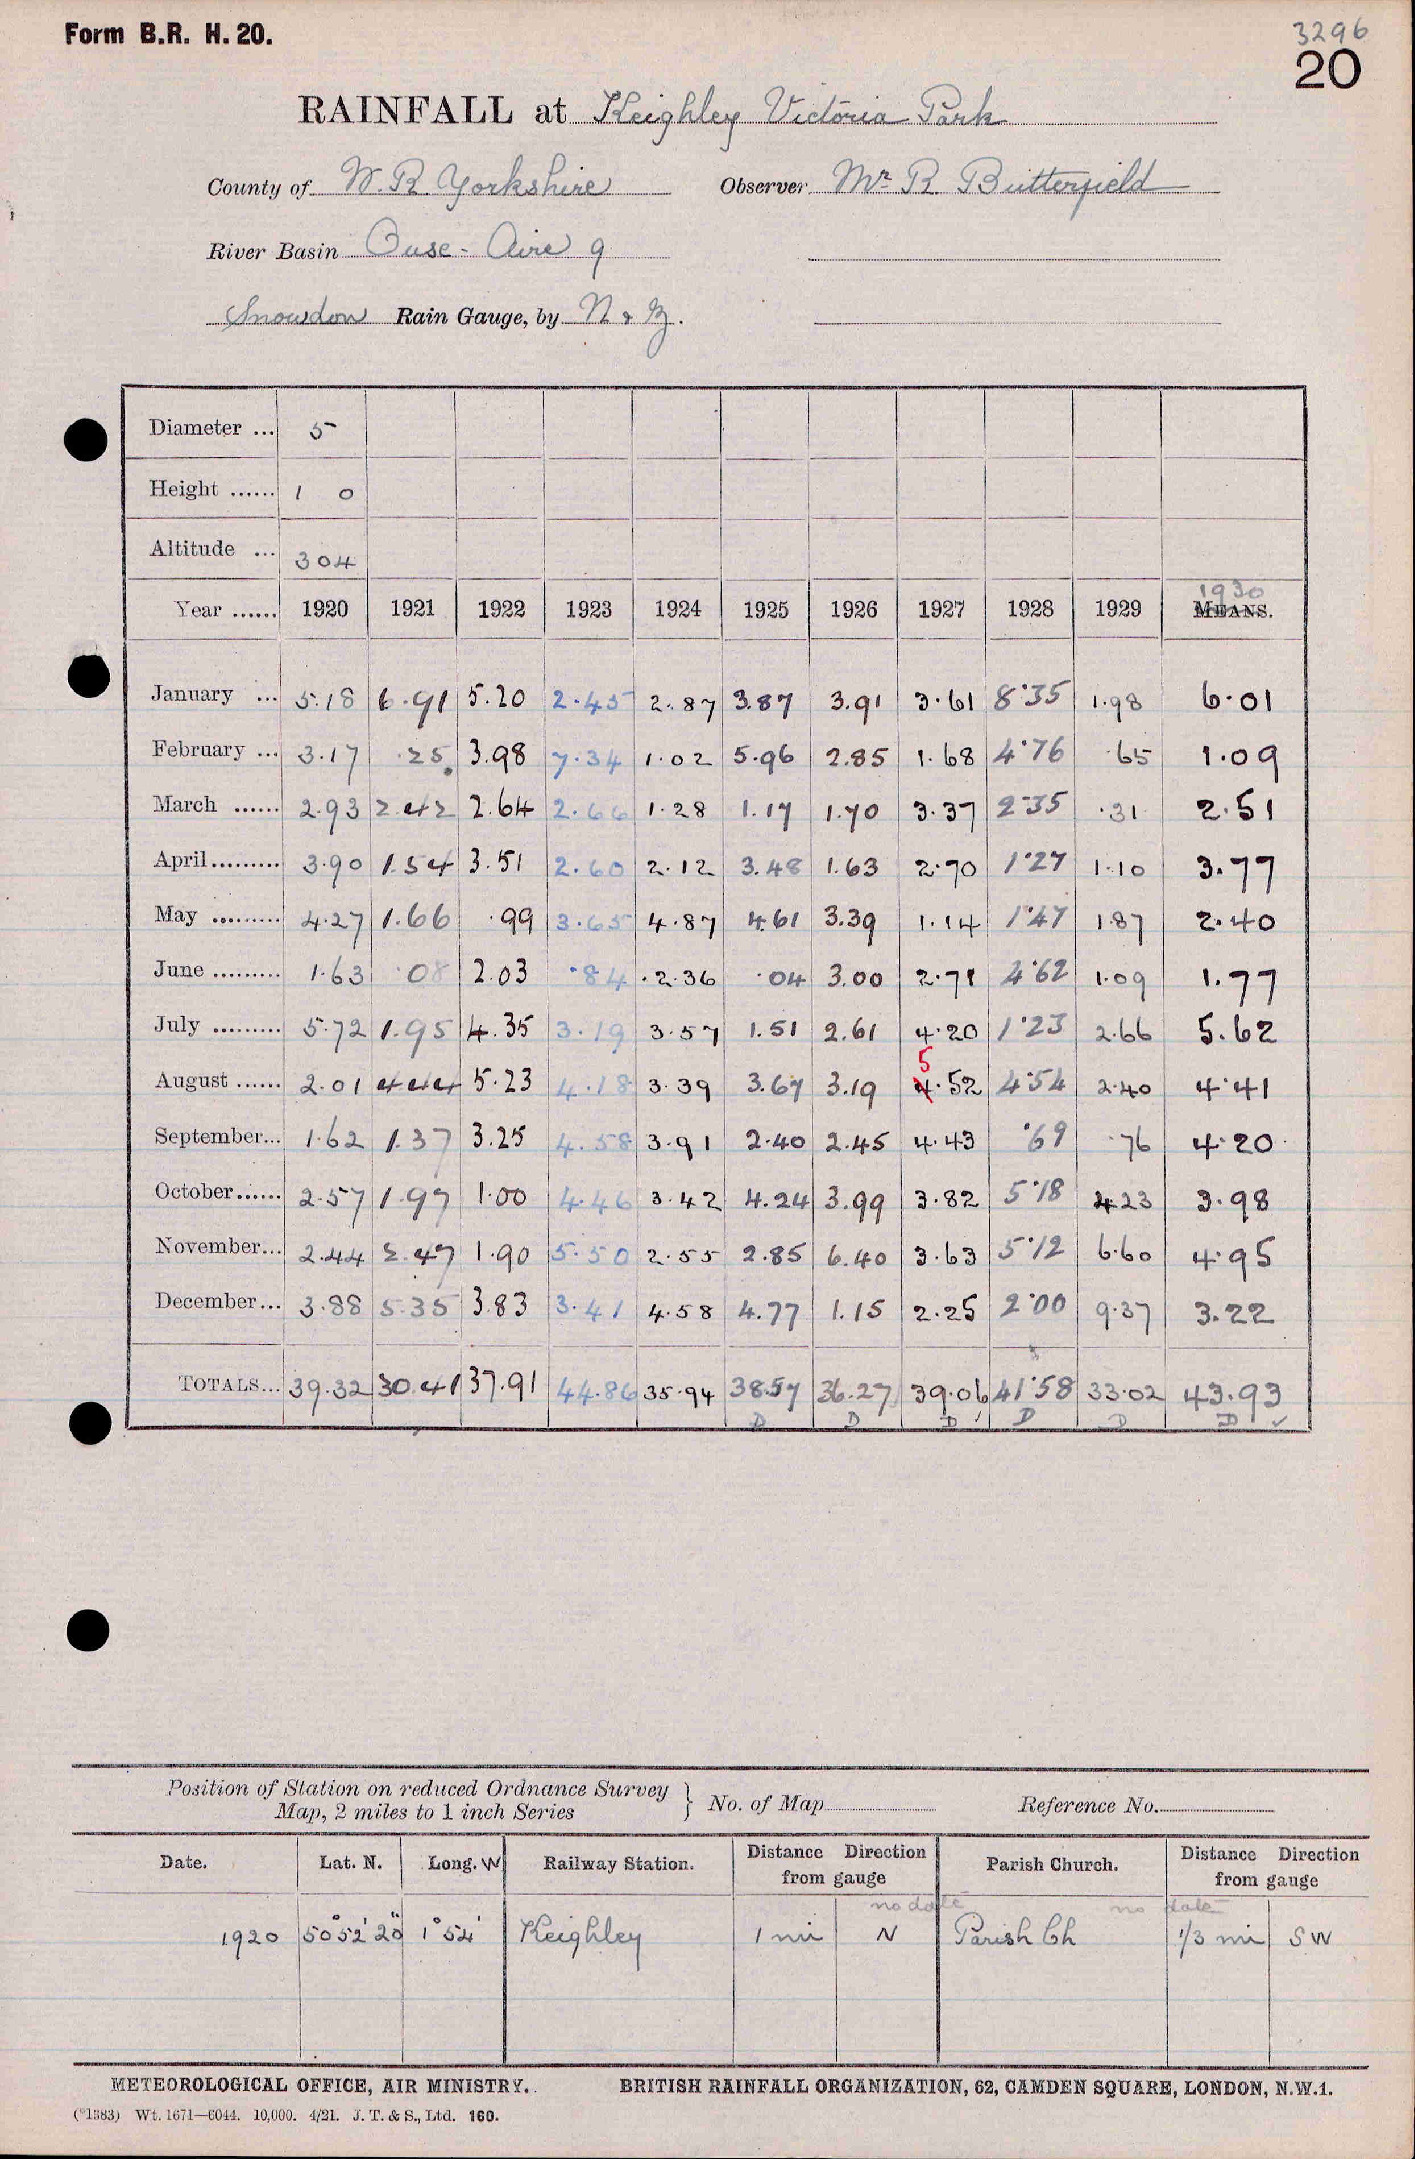 Form B.R. H. 20.
3296
20
RAINFALL at Keighley Victoria Park
County of W. R. Yorkshire Observer Mr R Butterfield
River Basin Ouse - Aire 9
Snowdon Rain Gauge, by N & Z.
Diameter ... 5
Height ...... 1 0
Altitude ... 304
1930
Year ...... 1920 1921 1922 1923 1924 1925 1926 1927 1928 1929 MEANS.
January ... 5.18 6.91 5.20 2.45 2.87 3.87 3.91 3.61 8.35 1.98 6.01
February ... 3.17 .25 3.98 7.34 1.02 5.96 2.85 1.68 4.76 .65 1.09
March ...... 2.93 2.42 2.64 2.66 1.28 1.17 1.70 3.37 2.35 .31 2.51
April......... 3.90 1.54 3.51 2.60 2.12 3.48 1.63 2.70 1.27 1.10 3.77
May ......... 4.27 1.66 .99 3.65 4.87 4.61 3.39 1.14 1.47 1.87 2.40
June ......... 1.63 .08 2.03 .84 2.36 .04 3.00 2.71 4.62 1.09 1.77
July ......... 5.72 1.95 4.35 3.19 3.57 1.51 2.61 4.20 1.23 2.66 5.62
5
August ...... 2.01 4.44 5.23 4.18 3.39 3.67 3.19 4.52 4.54 2.40 4.41
September... 1.62 1.37 3.25 4.58 3.91 2.40 2.45 4.43 .69 .76 4.20
October...... 2.57 1.97 1.00 4.46 3.42 4.24 3.99 3.82 5.18 4.23 3.98
November... 2.44 2.47 1.90 5.50 2.55 2.85 6.40 3.63 5.12 6.60 4.95
December... 3.88 5.35 3.83 3.41 4.58 4.77 1.15 2.25 2.00 9.37 3.22
TOTALS... 39.32 30.41 37.91 44.86 35.94 38.57 36.27 39.06 41.58 33.02 43.93
D D D ✓ D D D ✓
Position of Station on reduced Ordnance Survey
Map, 2 miles to 1 inch Series } No. of Map Reference No.
Date. Lat. N. Long. W Railway Station. Distance from gauge Direction Parish Church. Distance from gauge Direction
no date no date
1920 50°52'20" 1°54' Keighley 1 mi N Parish Ch 1/3 mi SW
METEOROLOGICAL OFFICE, AIR MINISTRY. BRITISH RAINFALL ORGANIZATION, 62, CAMDEN SQUARE, LONDON, N.W.1.
(*1383) Wt. 1671—6044. 10,000. 4/21. J. T. & S., Ltd. 160.